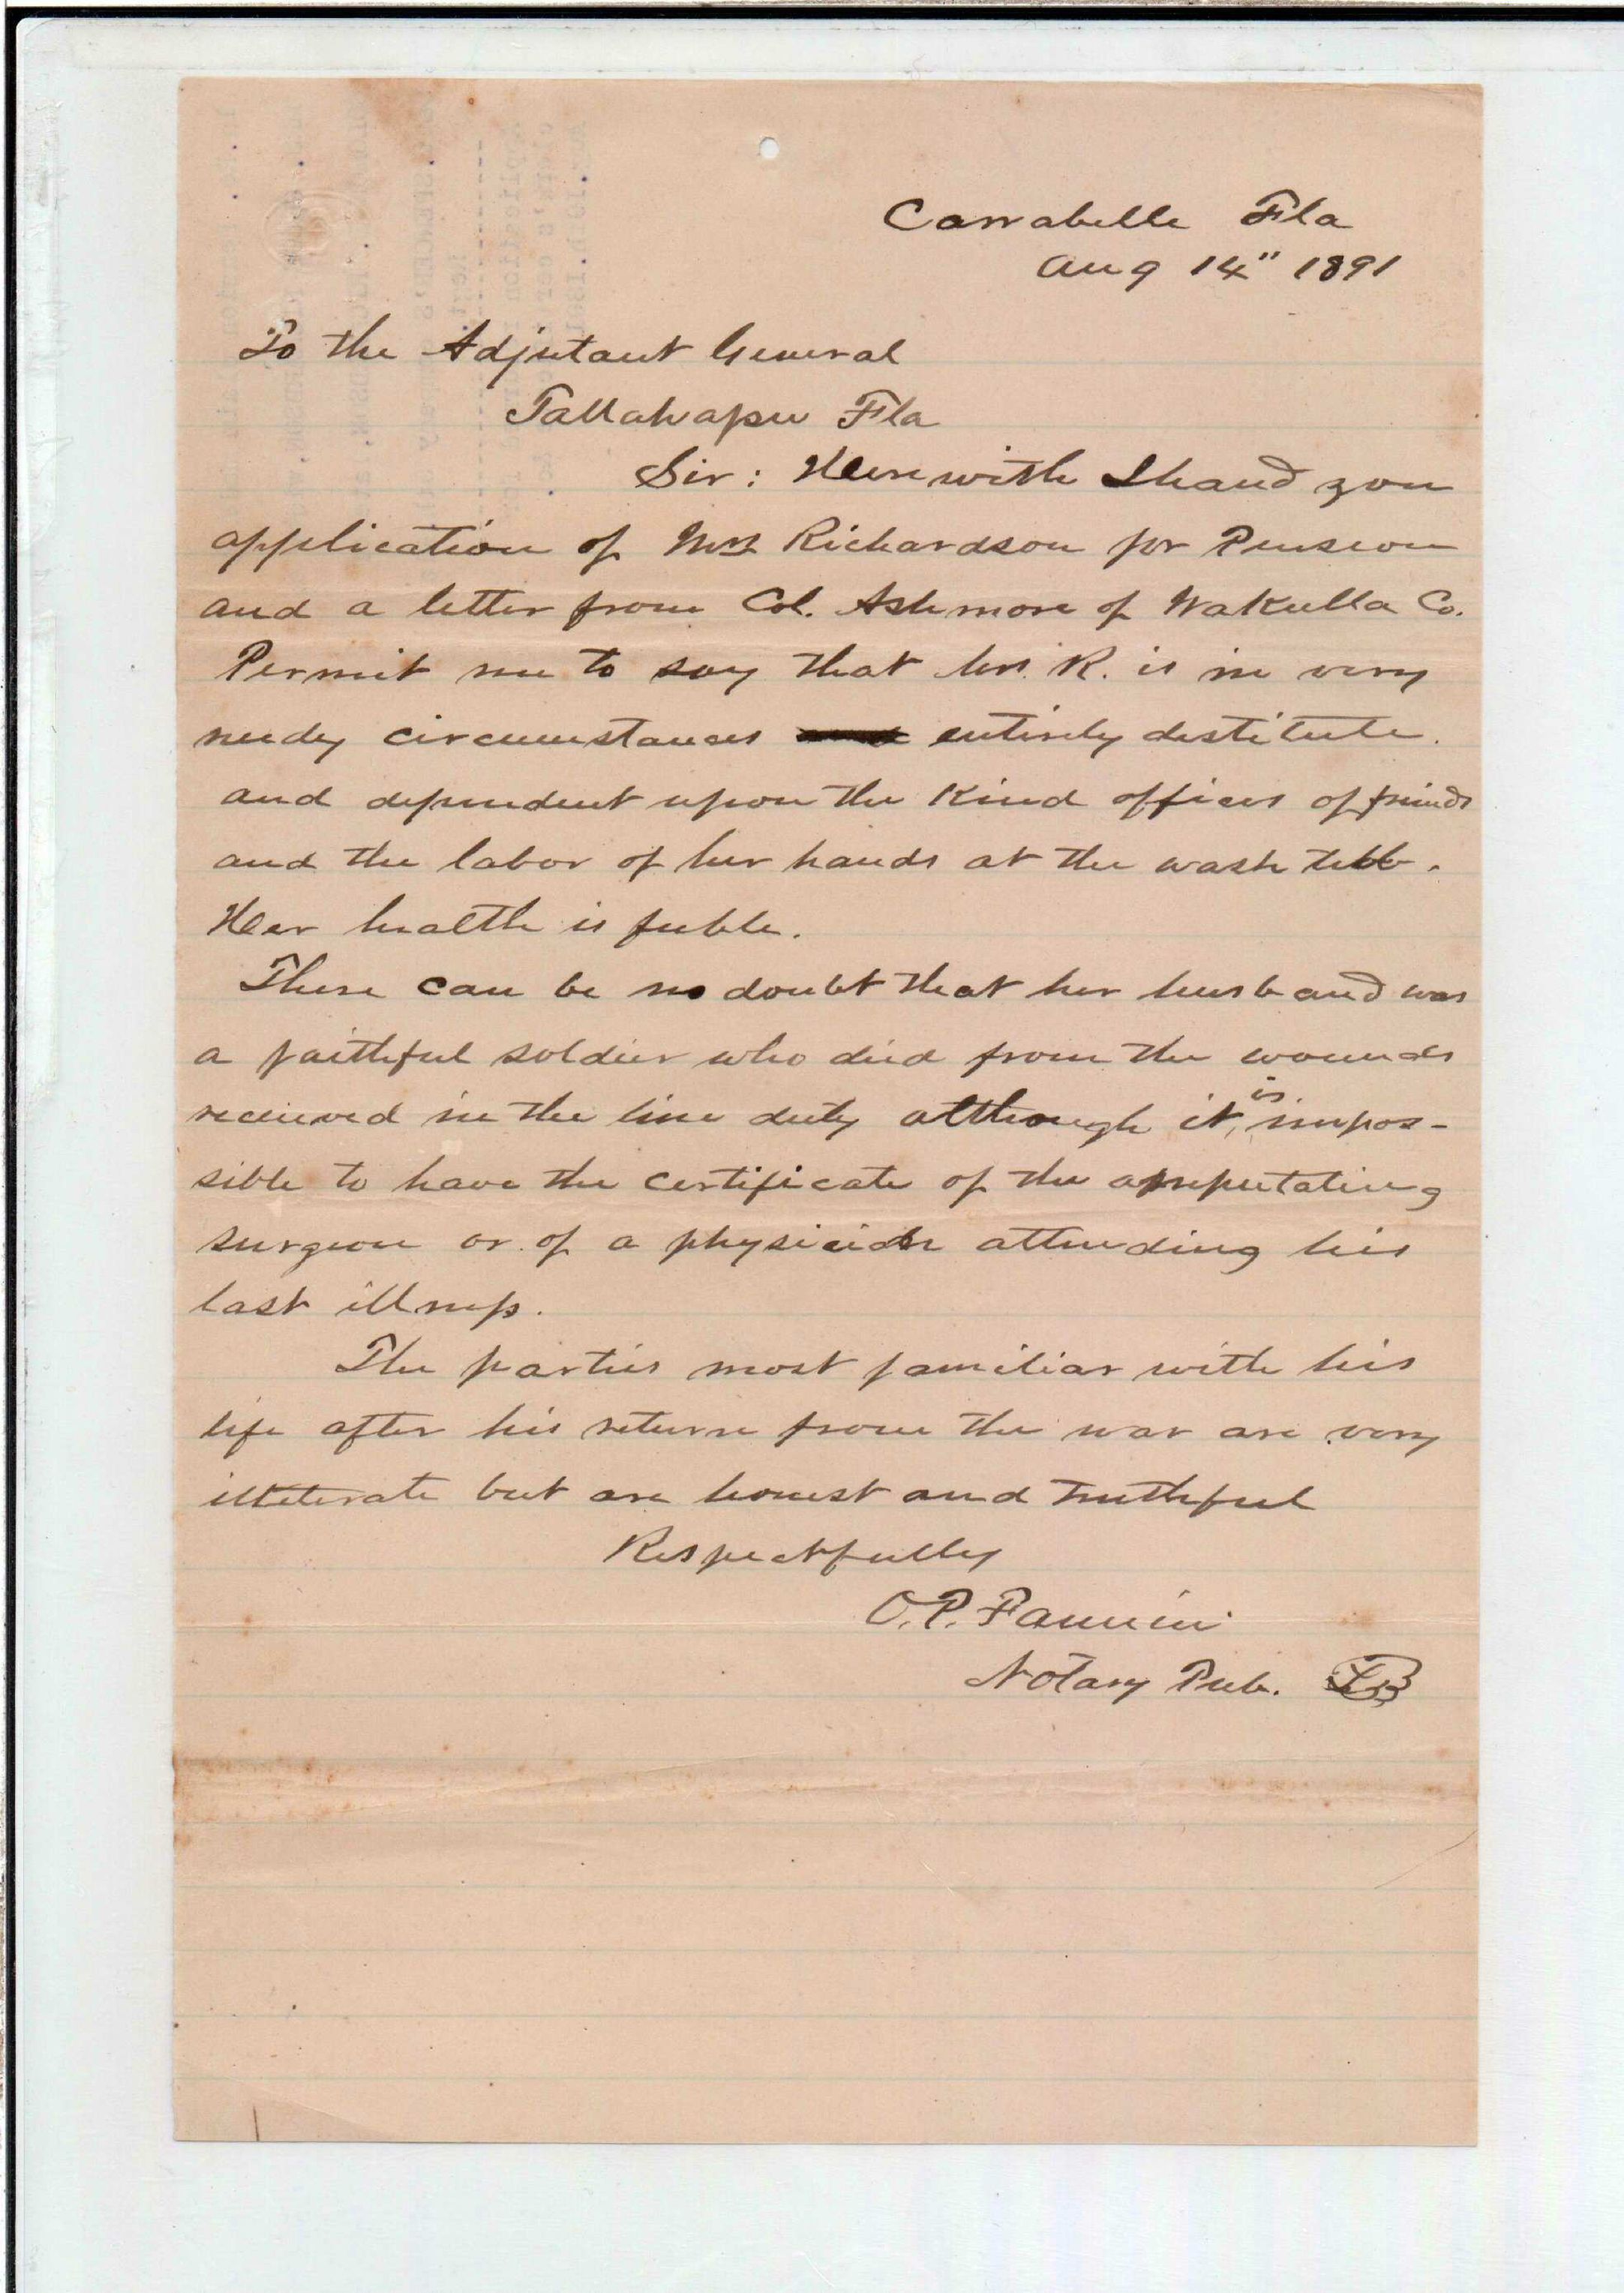 Carrabelle Fla
Aug 14" 1891
To the Adjutant General
Tallahassee Fla
Sir: Herewith I hand you
application of Mrs Richardson for Pension
and a letter from Col. Ashmore of Wakulla Co.
Permit me to say that Mrs. R. is in very
needy circumstances entirely destitute.
and dependent upon the kind offices of friends
and the labor of her hands at the wash tub.
Her health is feeble.
There can be no doubt that her husband was
a faithful soldier who died from the wounds
received in the line duty although it is impos-
sible to have the certificate of the amputating
surgeon or of a physician attending his
last illness.
The parties most familiar with his
life after his return from the war are very
illiterate but are honest and truthful
Respectfully
O.P. Fannin
Notary Pub.